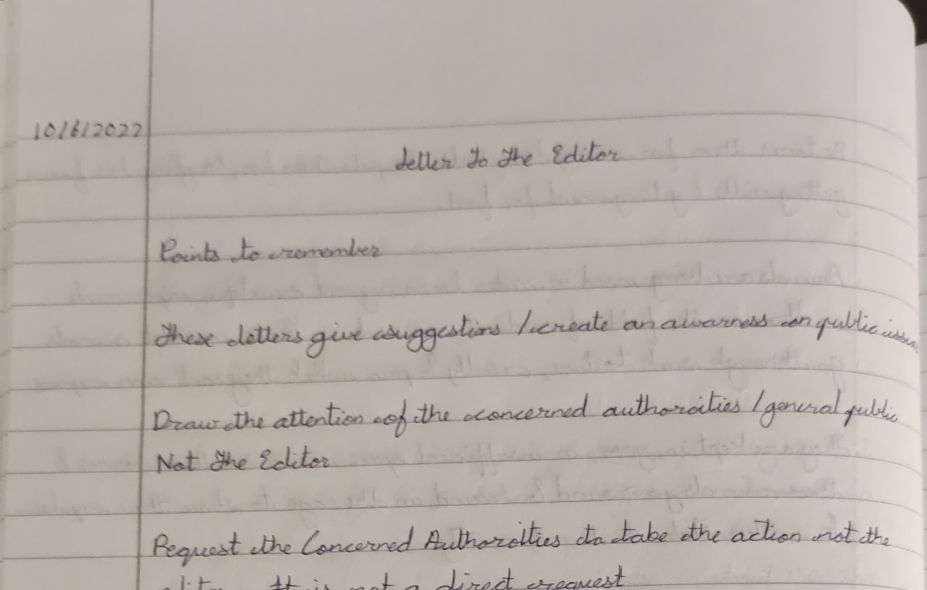 10/6/2022
Letter To The Editor
Points to remember
These letters give suggestions / create an awarness on public issues
Draw the attention of the concerned authoraities / general public
Not The Editor
Request the Concerned Authoraities to take the action not the
It is not a direct request